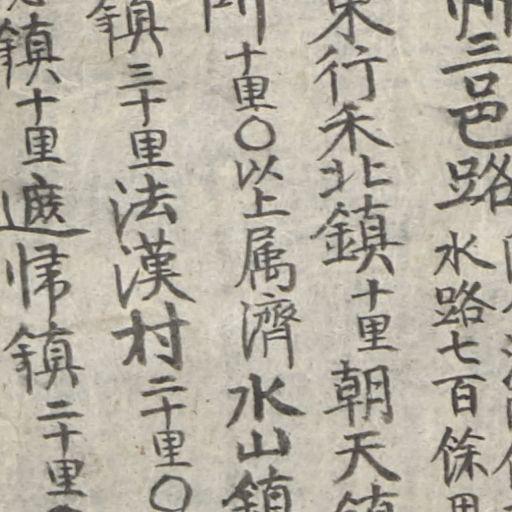 三邑路 水路七百餘里
東行禾北鎮 十里 朝天鎮
十里○以上属濟水山鎮
鎮 三十里 法漢村 二十里○
鎮 十里 遮帰鎮 二十里